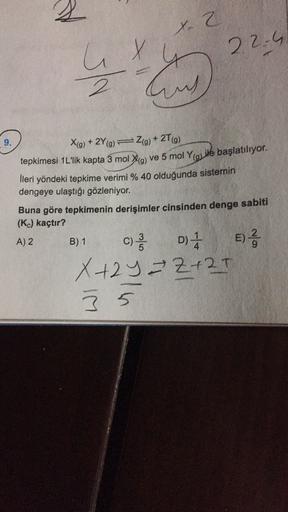 x=2
4 x 4
2
2.2=4
9.
X(g) + 2Y(g) ⇌ Z(g) + 2T(g)
tepkimesi 1L'lik kapta 3 mol X(g) ve 5 mol Y(g) ile başlatılıyor.
İleri yöndeki tepkime verimi % 40 olduğunda sistemin
dengeye ulaştığı gözleniyor.
Buna göre tepkimenin derişimler cinsinden denge sabiti
(Kc) kaçtır?
A) 2 B) 1 C) 3/5 D) 1/4 E) 2/9
X+2y ⇌ Z+2T
3 5